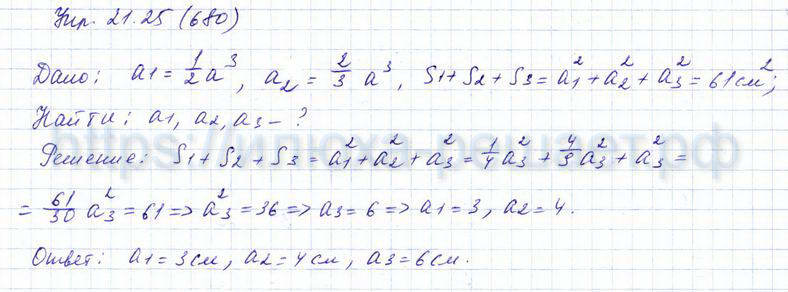 Упр. 21.25 (680)
Дано: a1 = 1/2 a³, a₂ = 2/3 a³, S1 + S2 + S3 = a₁² + a₂² + a₃² = 61 см²;
Найти: a1, a2, a3 - ?
https://илюха-решает.рф
Решение: S1 + S2 + S3 = a₁² + a₂² + a₃² = 1/4 a₃² + 4/9 a₃² + a₃² =
= 61/30 a₃² = 61 => a₃² = 36 => a3 = 6 => a1 = 3, a2 = 4.
Ответ: a1 = 3 см, a2 = 4 см, a3 = 6 см.